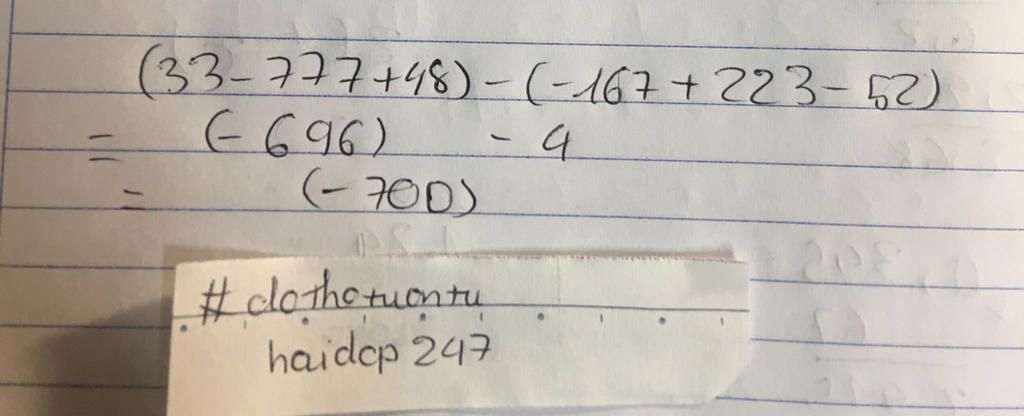 (33-777+48)-(-167+223-52)
= (-696) - 4
= (-700)
# clothotuontu
haidcp 247